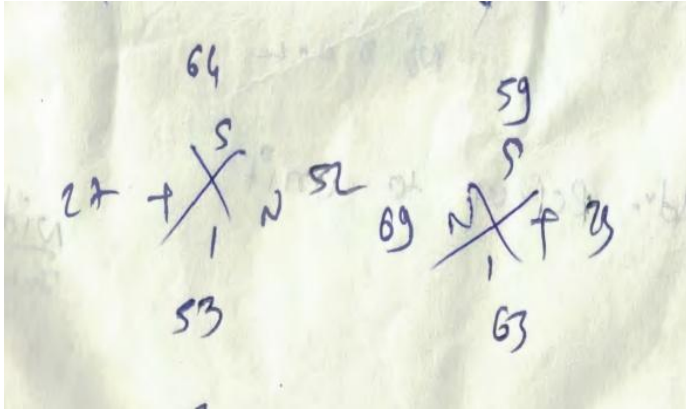 64
S
27 T N 52
I
53
59
S
69 N T 29
I
63